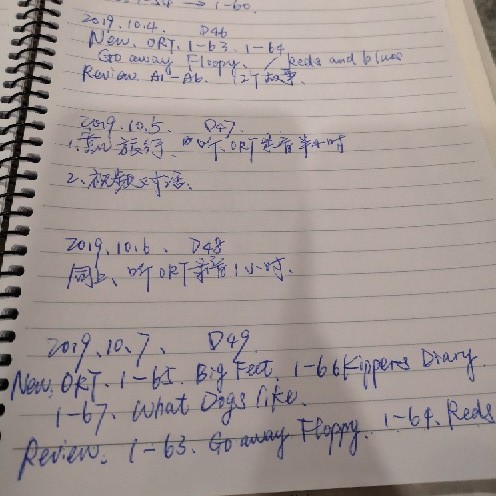 → 1-60.
2019.10.4. D46
New. ORT. 1-63. 1-64
Go away Floppy. / Reds and blues
Review A1-A6. 12个故事.
2019.10.5. D47.
1. 旅行, 听ORT录音半小时
2. 视频对话.
2019.10.6. D48
同上, 听ORT录音1小时.
2019.10.7. D49
New. ORT. 1-65. Big Feet. 1-66 Kippers Diary.
1-67. What Dogs like.
Review. 1-63. Go away Floppy. 1-64. Reds